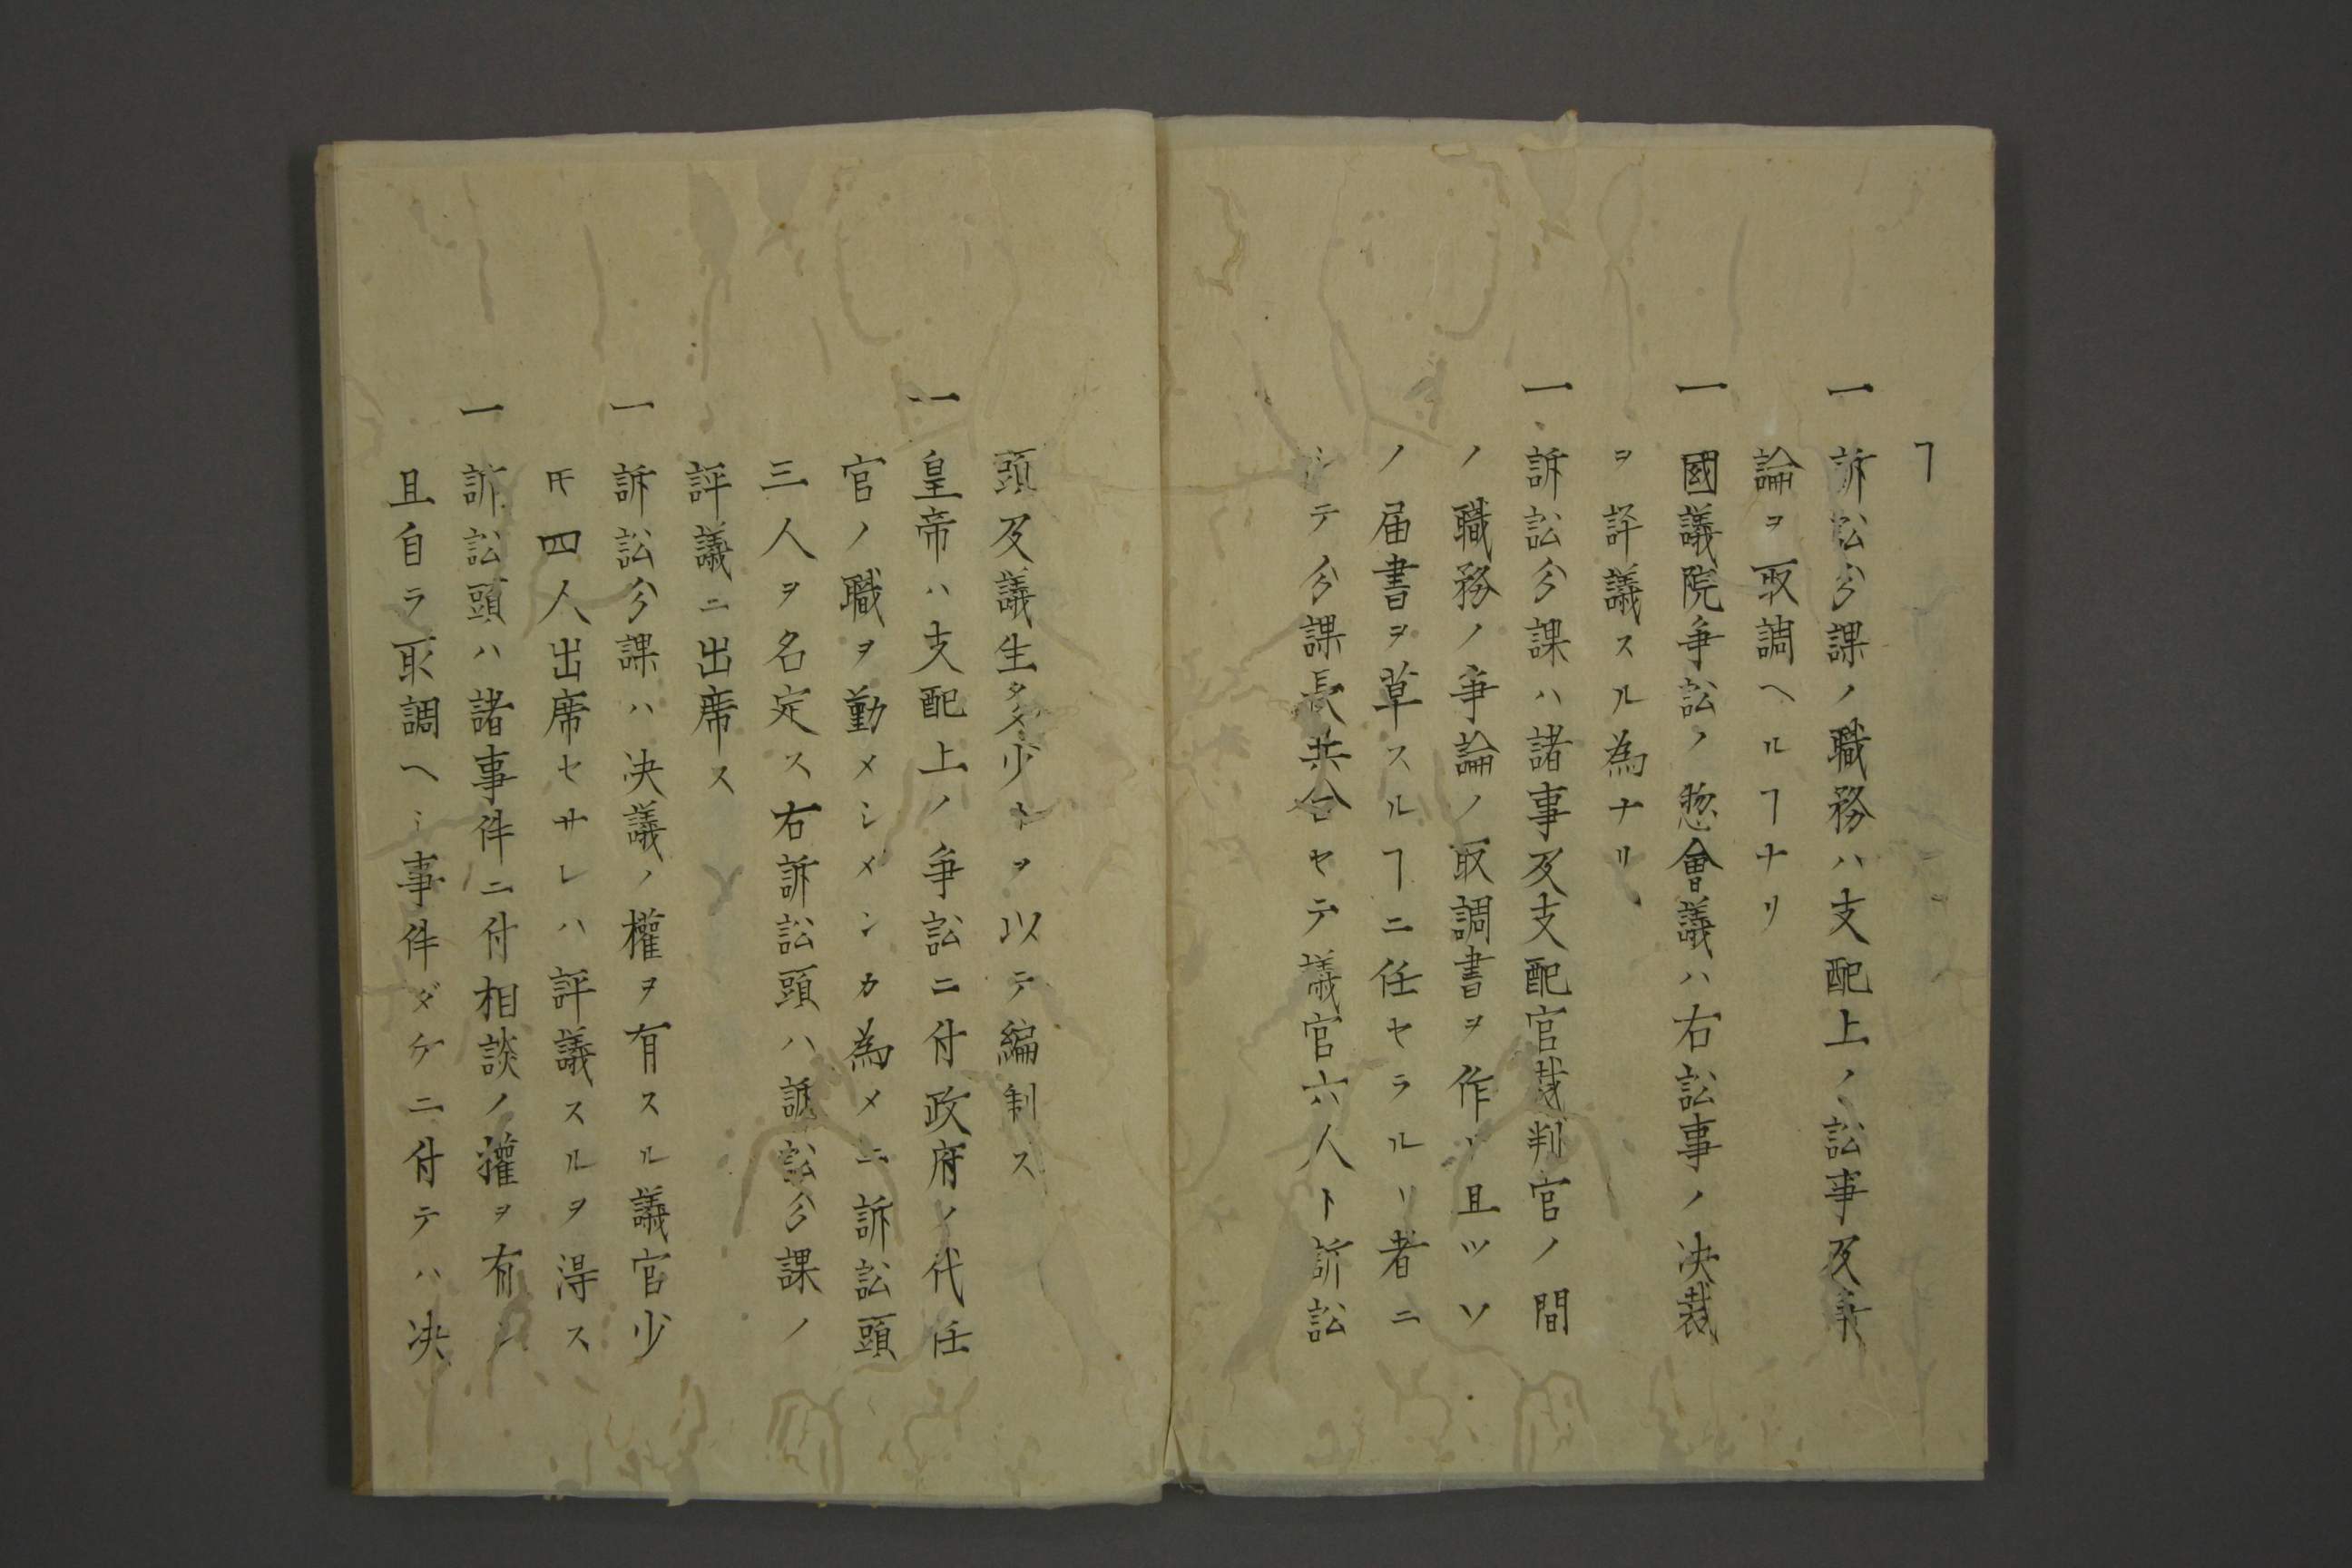 ヿ
一訴訟分課ノ職務ハ支配上ノ訟事及爭
論ヲ取調ヘルヿナリ
一國議院爭訟ノ惣會議ハ右訟事ノ决裁
ヲ評議スル為ナリ
一訴訟分課ハ諸事及支配官裁判官ノ間
ノ職務ノ爭論ノ取調書ヲ作リ且ツソ
ノ届書ヲ草スルヿニ任セラルリ者ニ
シテ分課長共合セテ議官六人ト訴訟
頭及議生多少トヲ以テ編制ス
一皇帝ハ支配上ノ爭訟ニ付政府ノ代任
官ノ職ヲ勤メシメンカ為メニ訴訟頭
三人ヲ名定ス右訴訟頭ハ訴訟分課ノ
評議ニ出席ス
一訴訟分課ハ决議ノ權ヲ有スル議官少
𪜈四人出席セサレハ評議スルヲ得ス
一訴訟頭ハ諸事件ニ付相談ノ權ヲ有シ
且自ラ取調ヘシ事件ダケニ付テハ决